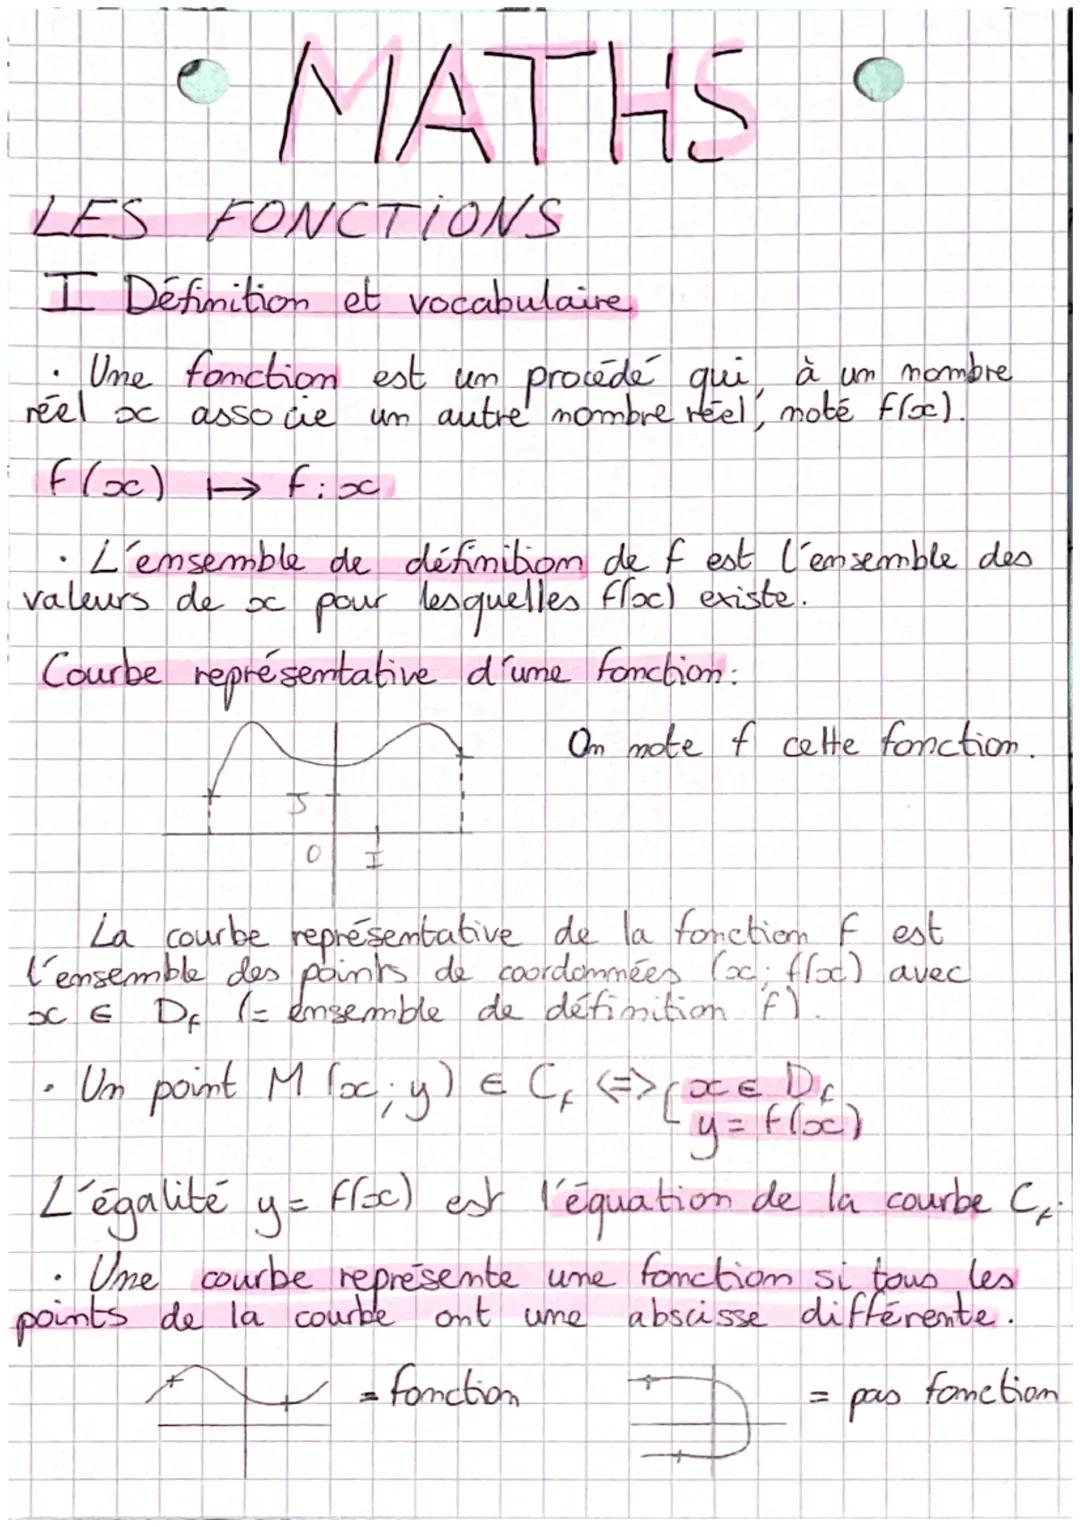 MATHS
LES FONCTIONS
I Définition et vocabulaire
· Une fonction est un procédé qui, à un nombre
réel x associe un autre nombre réel, noté f(x).
f(x) ↦ f: x
· L'ensemble de définition de f est l'ensemble des
valeurs de x pour lesquelles f(x) existe.
Courbe représentative d'une fonction:
On note f cette fonction.
J
O I
La courbe représentative de la fonction f est
l'ensemble des points de coordonnées (x; f(x) avec
x ∈ Df (= ensemble de définition f).
· Un point M (x; y) ∈ Cf <=> { x ∈ Df
y = f(x)
L'égalité y = f(x) est l'équation de la courbe Cf.
· Une courbe représente une fonction si tous les
points de la courbe ont une abscisse différente.
= fonction = pas fonction